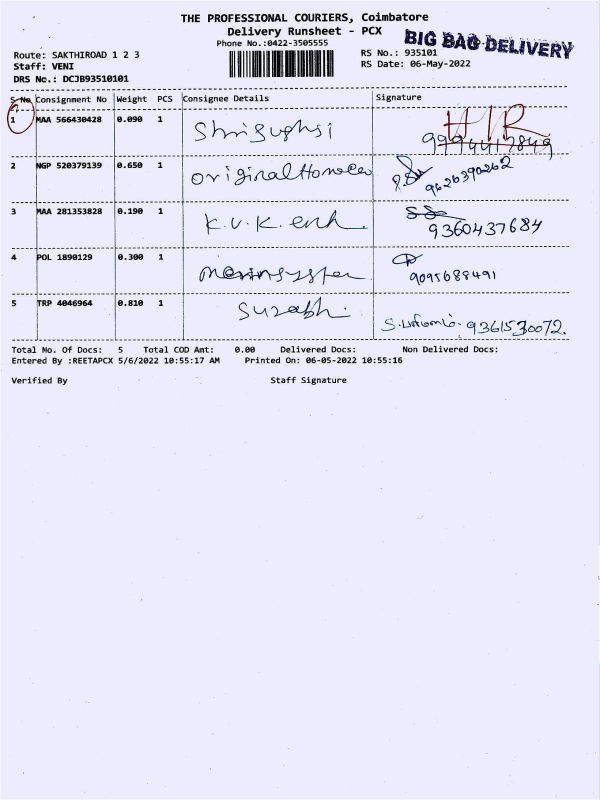 THE PROFESSIONAL COURIERS, Coimbatore
Delivery Runsheet - PCX
BIG BAG DELIVERY
Phone No.:0422-3505555
Route: SAKTHIROAD 1 2 3
RS No.: 935101
Staff: VENI
RS Date: 06-May-2022
DRS No.: DCJB93510101
S No Consignment No Weight PCS Consignee Details Signature
1 MAA 566430428 0.090 1 HIR
2 NGP 520379139 0.650 1 original 9626390262
3 MAA 281353828 0.190 1 K.V.K. 9360437684
4 POL 1890129 0.300 1 9095688491
5 TRP 4046964 0.810 1 Surabhi 9361530072.
Total No. Of Docs: 5 Total COD Amt: 0.00 Delivered Docs: Non Delivered Docs:
Entered By :REETAPCX 5/6/2022 10:55:17 AM Printed On: 06-05-2022 10:55:16
Verified By Staff Signature